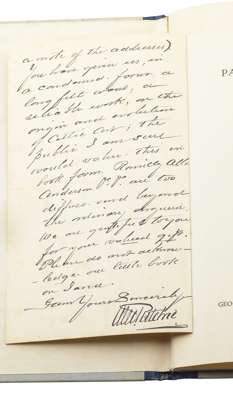 a note of the addresses)
You have given us, in
a condensed form a
long felt want, a
reliable work, on the
origin and evolution
of Celtic Art; the
public I am sure
would value this in
book form. Romilly Allen
Anderson are two
diffuse and beyond
the ordinary
We are grateful to you
for your valued gift.
Please do not acknow-
-ledge our little book
on
Yours Sincerely
PA
GEO